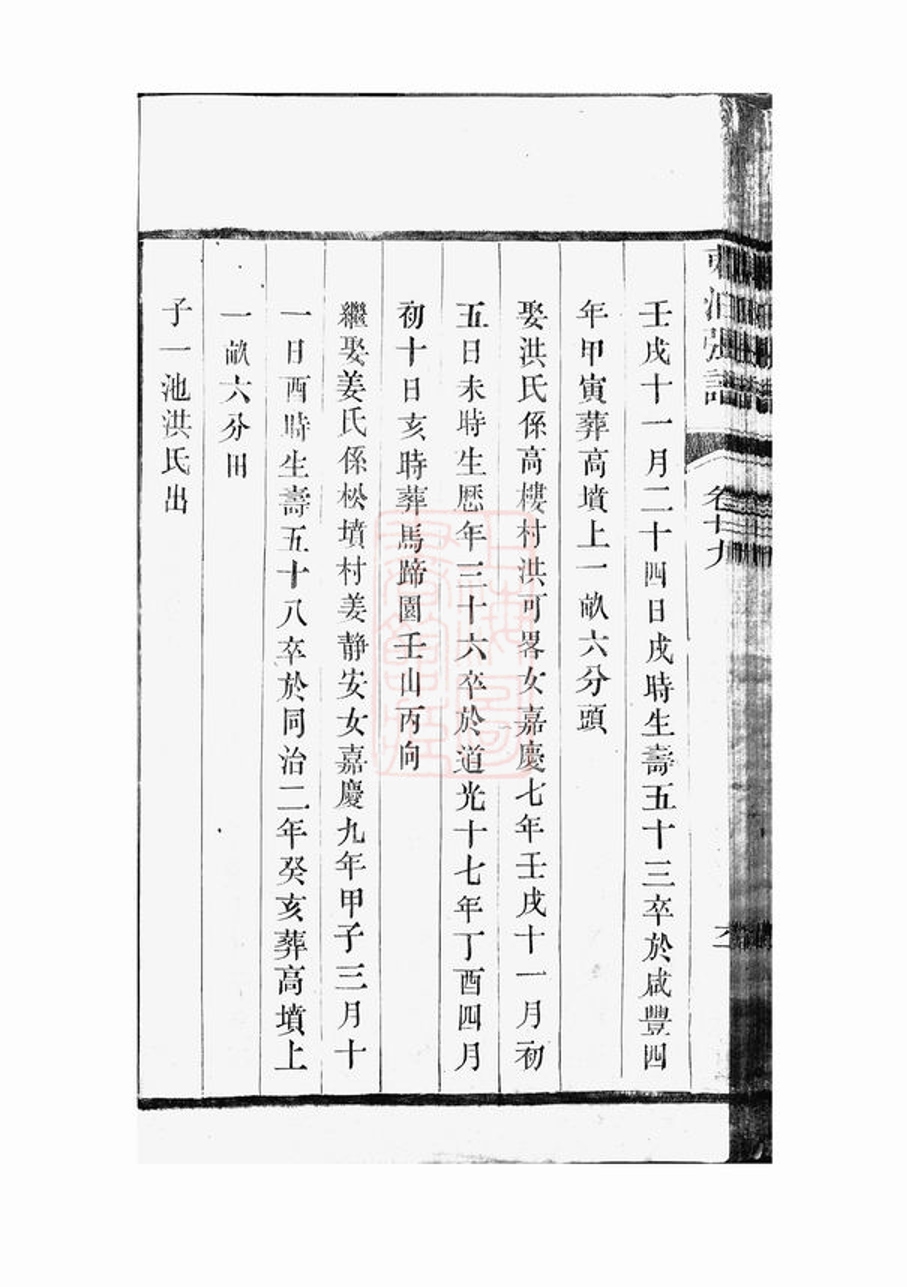 張譜 卷廿九
壬戌十一月二十四日戌時生壽五十三卒於咸豐四
年甲寅葬高墳上一畝六分頭
娶洪氏係高樓村洪可畧女嘉慶七年壬戌十一月初
五日未時生歷年三十六卒於道光十七年丁酉四月
初十日亥時葬馬蹄園壬山丙向
繼娶姜氏係松墳村姜靜安女嘉慶九年甲子三月十
一日酉時生壽五十八卒於同治二年癸亥葬高墳上
一畝六分田
子一池洪氏出